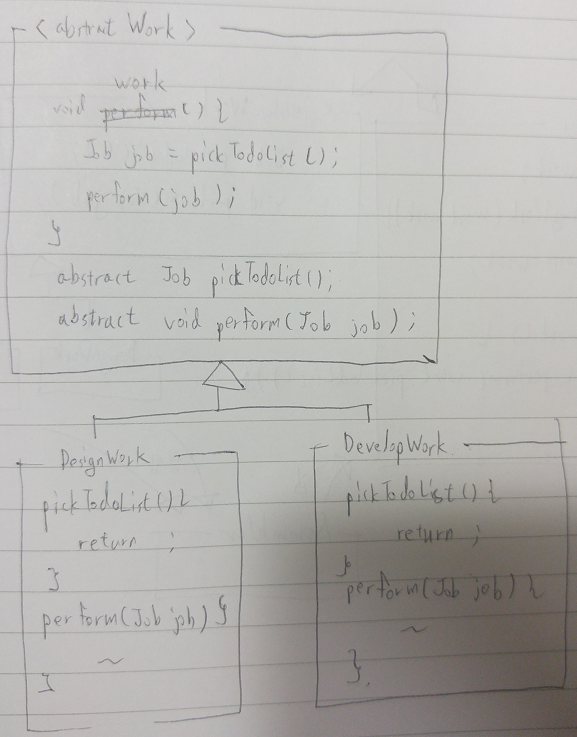 < abstract Work >
work
void perform() {
Job job = pickTodoList();
perform(job);
}
abstract Job pickTodoList();
abstract void perform(Job job);
DesignWork
pickTodoList(){
return ;
}
perform(Job job) {
~
}
DevelopWork
pickTodoList() {
return ;
}
perform(Job job) {
~
}.